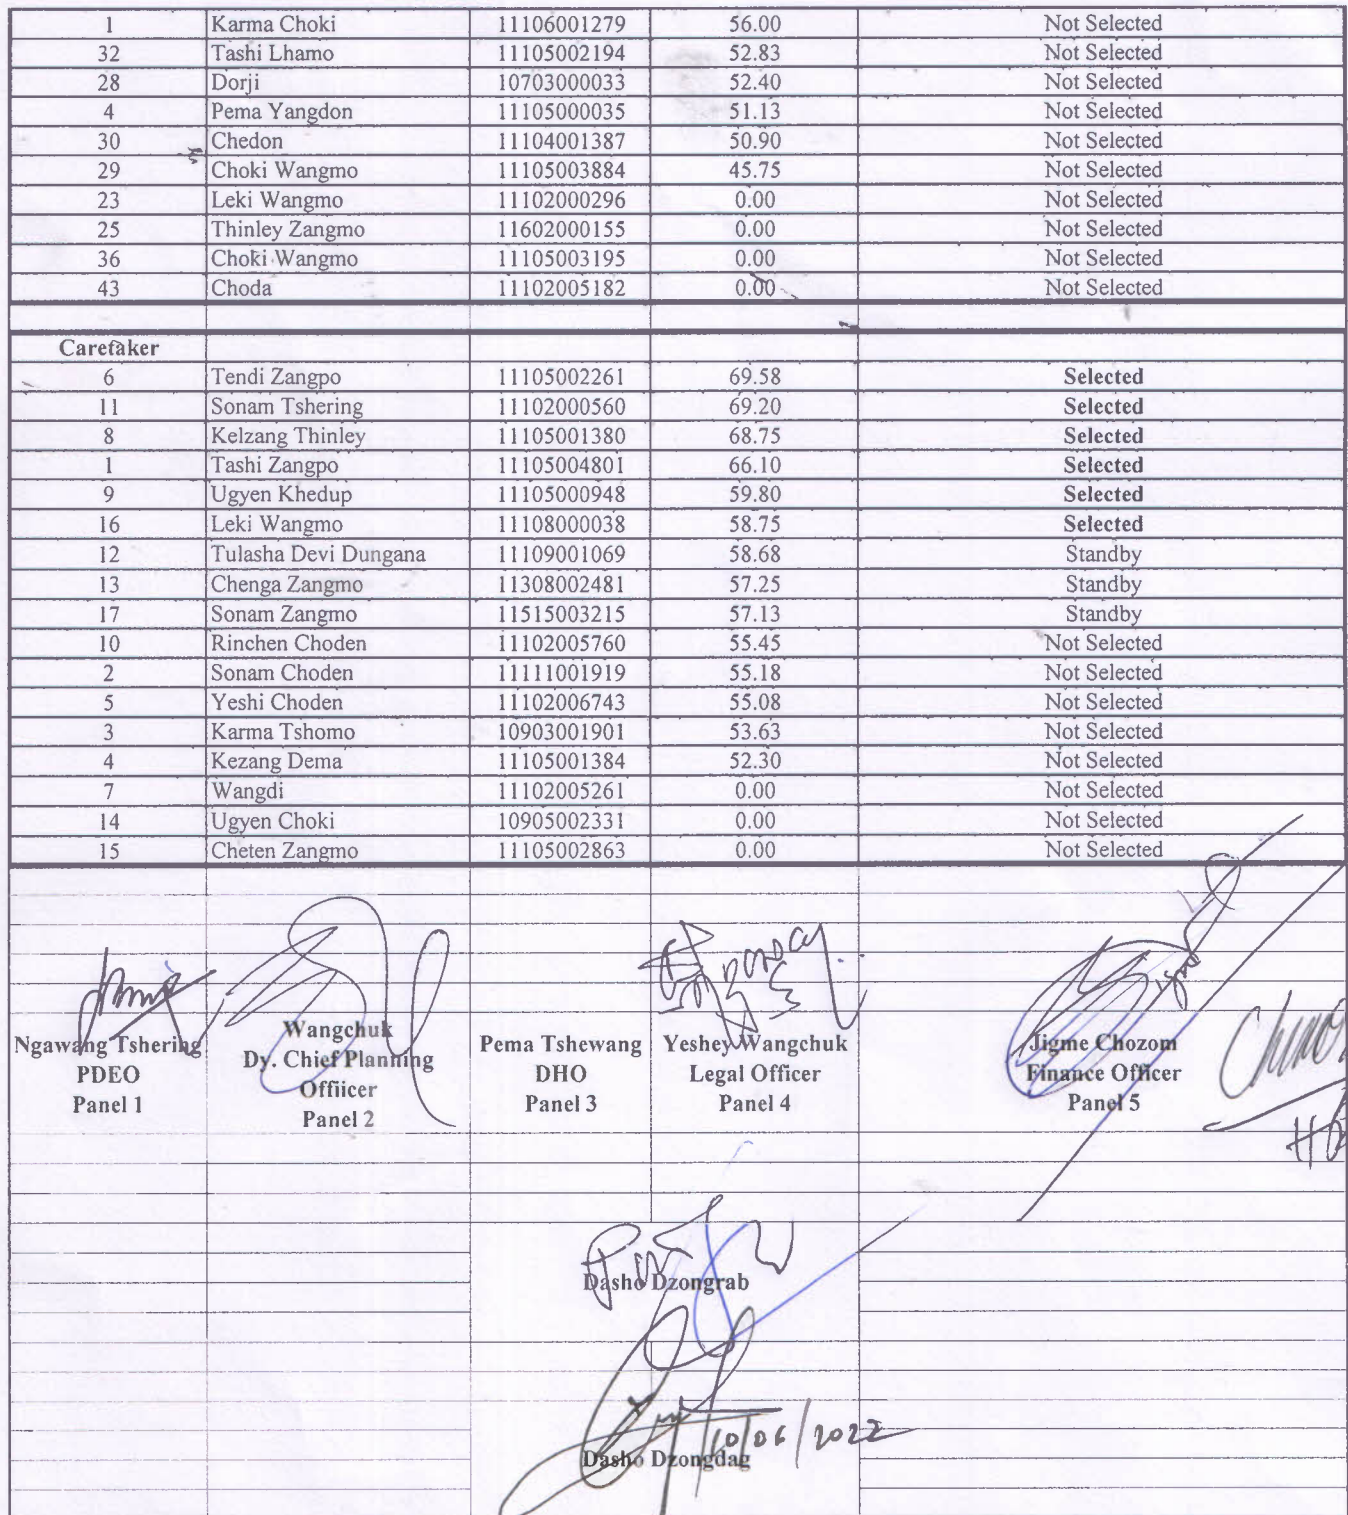 1 Karma Choki 11106001279 56.00 Not Selected
32 Tashi Lhamo 11105002194 52.83 Not Selected
28 Dorji 10703000033 52.40 Not Selected
4 Pema Yangdon 11105000035 51.13 Not Selected
30 Chedon 11104001387 50.90 Not Selected
29 Choki Wangmo 11105003884 45.75 Not Selected
23 Leki Wangmo 11102000296 0.00 Not Selected
25 Thinley Zangmo 11602000155 0.00 Not Selected
36 Choki Wangmo 11105003195 0.00 Not Selected
43 Choda 11102005182 0.00 Not Selected
Caretaker
6 Tendi Zangpo 11105002261 69.58 Selected
11 Sonam Tshering 11102000560 69.20 Selected
8 Kelzang Thinley 11105001380 68.75 Selected
1 Tashi Zangpo 11105004801 66.10 Selected
9 Ugyen Khedup 11105000948 59.80 Selected
16 Leki Wangmo 11108000038 58.75 Selected
12 Tulasha Devi Dungana 11109001069 58.68 Standby
13 Chenga Zangmo 11308002481 57.25 Standby
17 Sonam Zangmo 11515003215 57.13 Standby
10 Rinchen Choden 11102005760 55.45 Not Selected
2 Sonam Choden 11111001919 55.18 Not Selected
5 Yeshi Choden 11102006743 55.08 Not Selected
3 Karma Tshomo 10903001901 53.63 Not Selected
4 Kezang Dema 11105001384 52.30 Not Selected
7 Wangdi 11102005261 0.00 Not Selected
14 Ugyen Choki 10905002331 0.00 Not Selected
15 Cheten Zangmo 11105002863 0.00 Not Selected
Ngawang Tshering
PDEO
Panel 1
Wangchuk
Dy. Chief Planning
Offiicer
Panel 2
Pema Tshewang
DHO
Panel 3
Yeshey Wangchuk
Legal Officer
Panel 4
Jigme Chozom
Finance Officer
Panel 5
Dasho Dzongrab
10/06/2022
Dasho Dzongdag